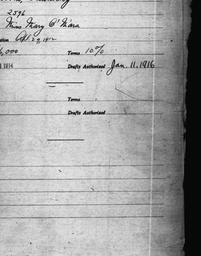 2596
Miss Mary O'Mara
Oct 29, 1912
,000 Terms 10%
1914 Drafts Authorized Jan. 11, 1916
Terms
Drafts Authorized